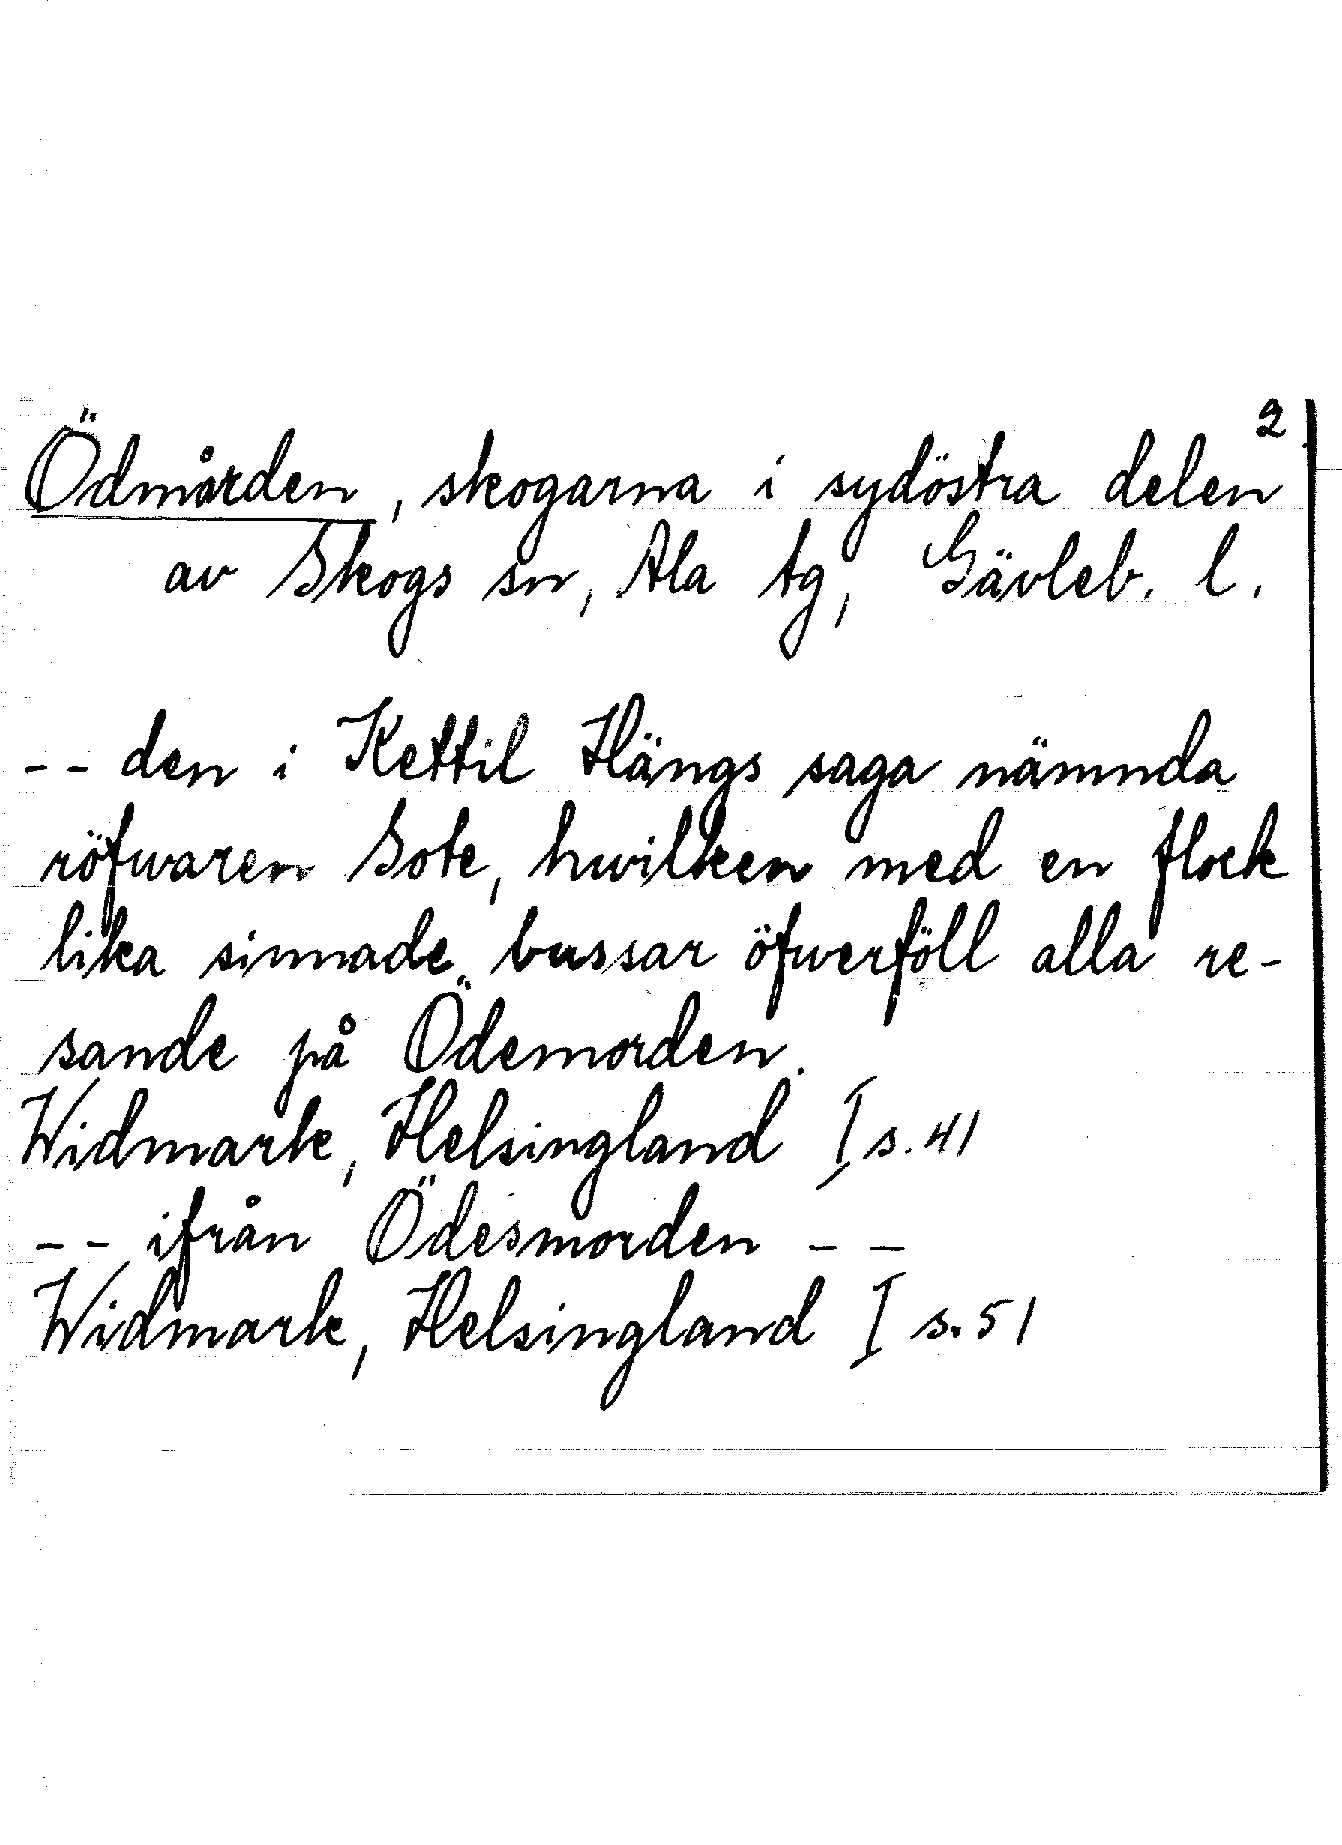 2
Ödmården, skogarna i sydöstra delen
av Skogs sn, Ala tg, Gävleb. l.
-- den i Kettil Hängs saga nämnda
röfwaren Sote, hwilken med en flock
lika sinnade bussar öfwerföll alla re-
sande på Ödemorden.
Widmark, Helsingland I s. 41
-- ifrån Ödesmorden --
Widmark, Helsingland I s. 51